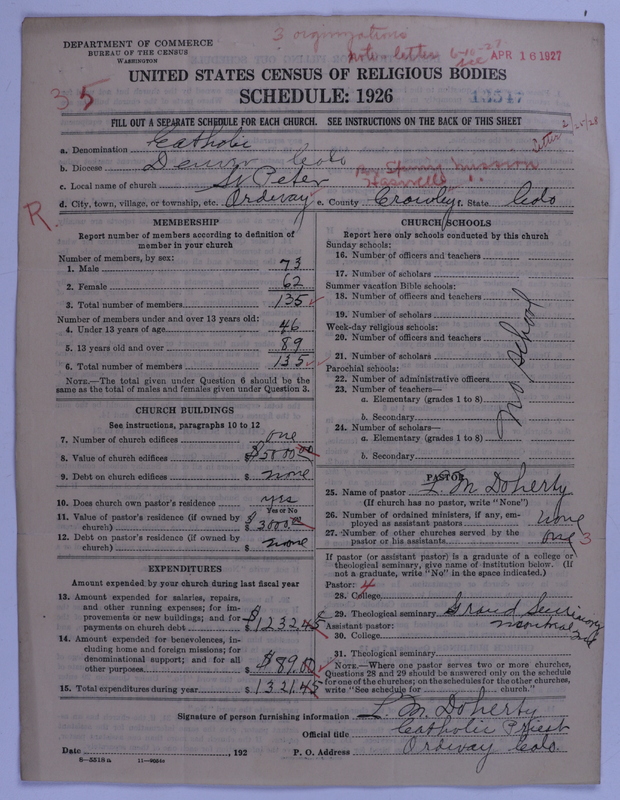 3 organizations
DEPARTMENT OF COMMERCE
BUREAU OF THE CENSUS
WASHINGTON
note letter 6-10-27
see
APR 16 1927
UNITED STATES CENSUS OF RELIGIOUS BODIES
SCHEDULE: 1926
35
13547
FILL OUT A SEPARATE SCHEDULE FOR EACH CHURCH. SEE INSTRUCTIONS ON THE BACK OF THIS SHEET
letter 2/25/28
a. Denomination Catholic
b. Diocese Denver Colo
Spring mission
Haswell "
c. Local name of church St Peter
d. City, town, village, or township, etc. Ordway e. County Crowley f. State Colo
R.
MEMBERSHIP
Report number of members according to definition of
member in your church
Number of members, by sex:
1. Male 73
2. Female 62
3. Total number of members 135
Number of members under and over 13 years old:
4. Under 13 years of age 46
5. 13 years old and over 89
6. Total number of members 135
NOTE.—The total given under Question 6 should be the
same as the total of males and females given under Question 3.
CHURCH BUILDINGS
See instructions, paragraphs 10 to 12
7. Number of church edifices one
8. Value of church edifices $5000.00
9. Debt on church edifices $ none
10. Does church own pastor's residence yes
Yes or No
11. Value of pastor's residence (if owned by
church) $ 3000.00
12. Debt on pastor's residence (if owned by
church) $ none
EXPENDITURES
Amount expended by your church during last fiscal year
13. Amount expended for salaries, repairs,
and other running expenses; for im-
provements or new buildings; and for
payments on church debt $1232.45
14. Amount expended for benevolences, in-
cluding home and foreign missions; for
denominational support; and for all
other purposes $ 89.00
15. Total expenditures during year $ 1321.45
CHURCH SCHOOLS
Report here only schools conducted by this church
Sunday schools:
16. Number of officers and teachers
17. Number of scholars
Summer vacation Bible schools:
18. Number of officers and teachers
19. Number of scholars
Week-day religious schools:
20. Number of officers and teachers
21. Number of scholars
Parochial schools:
22. Number of administrative officers
23. Number of teachers—
a. Elementary (grades 1 to 8)
b. Secondary
24. Number of scholars—
a. Elementary (grades 1 to 8)
b. Secondary
no school
PASTOR
25. Name of pastor L. M Doherty
(If church has no pastor, write "None")
26. Number of ordained ministers, if any, em-
ployed as assistant pastors none
27. Number of other churches served by the
pastor or his assistants one 3
If pastor (or assistant pastor) is a graduate of a college or
theological seminary, give name of institution below. (If
not a graduate, write "No" in the space indicated.)
Pastor: 4
28. College
29. Theological seminary Grand Seminary
Montreal
Assistant pastor:
30. College
31. Theological seminary
NOTE.—Where one pastor serves two or more churches,
Questions 28 and 29 should be answered only on the schedule
for one of the churches; on the schedules for the other churches,
write "See schedule for church."
Signature of person furnishing information L. M. Doherty
Official title Catholic Priest
Date , 192 P. O. Address Ordway Colo
8—5518a 11—9054a